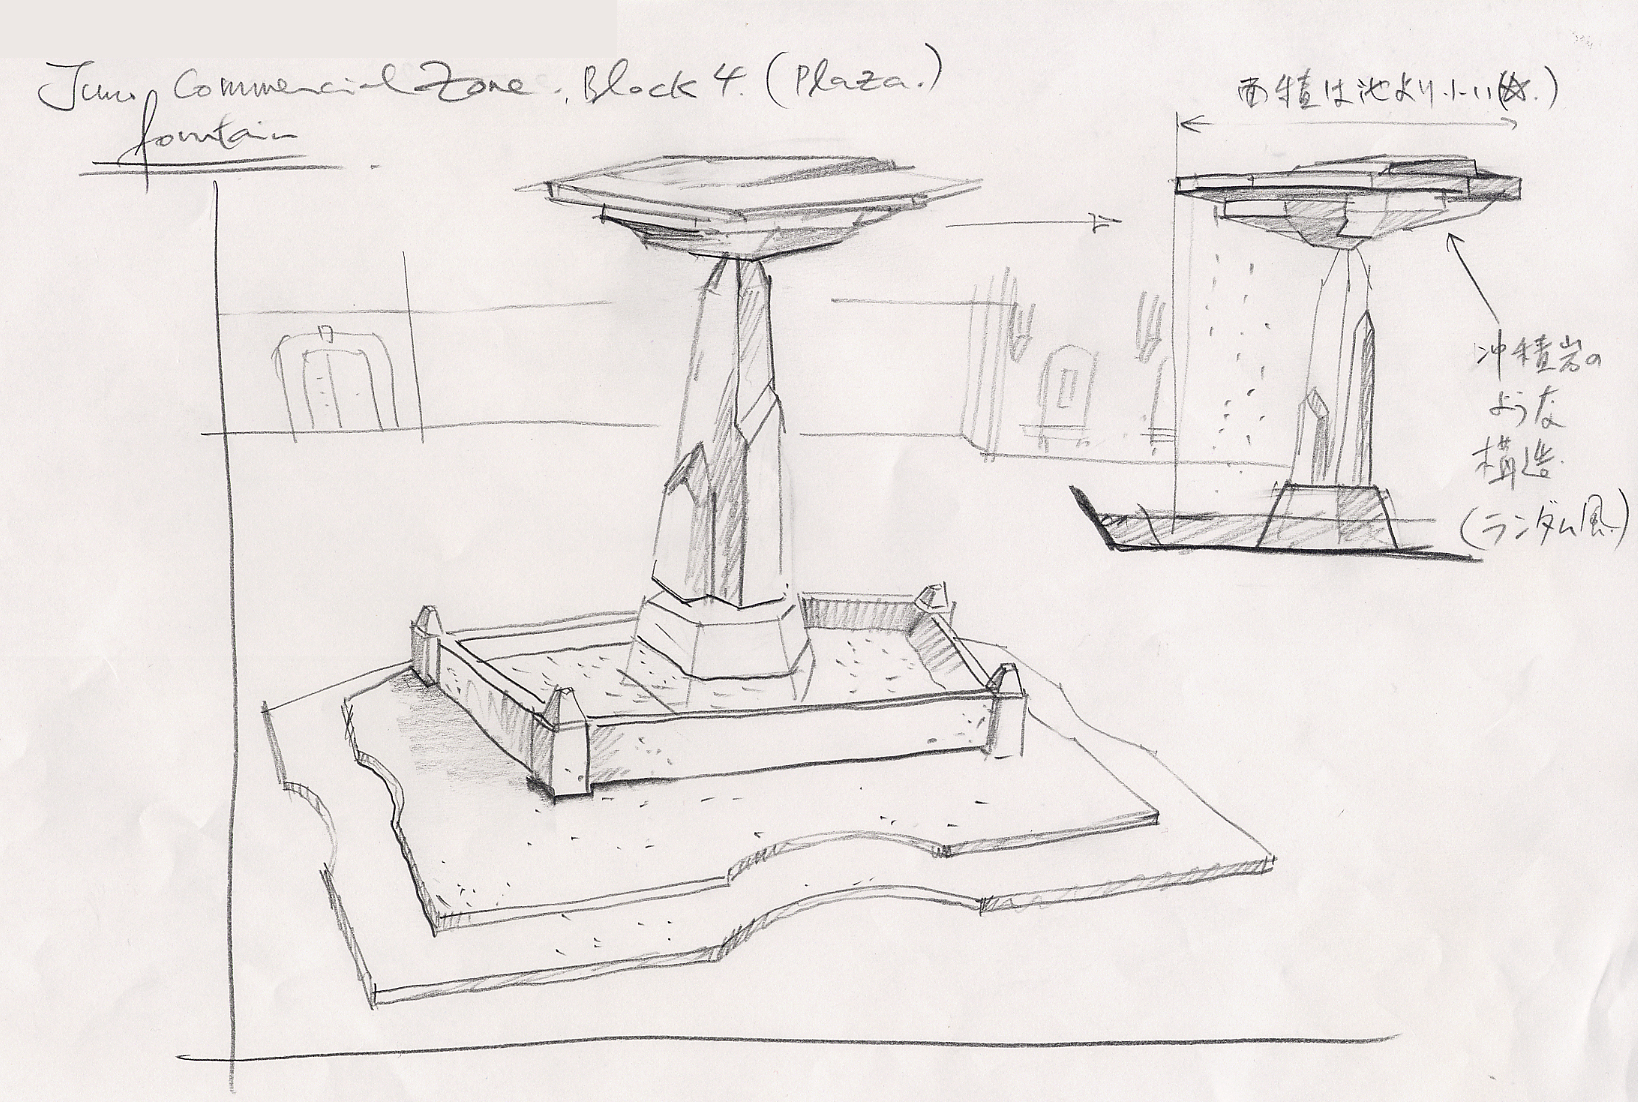 Juno Commercial Zone. Block 4. (Plaza.)
fountain
面積は池より小
沖積岩の
ような
構造.
(ランダム風.)